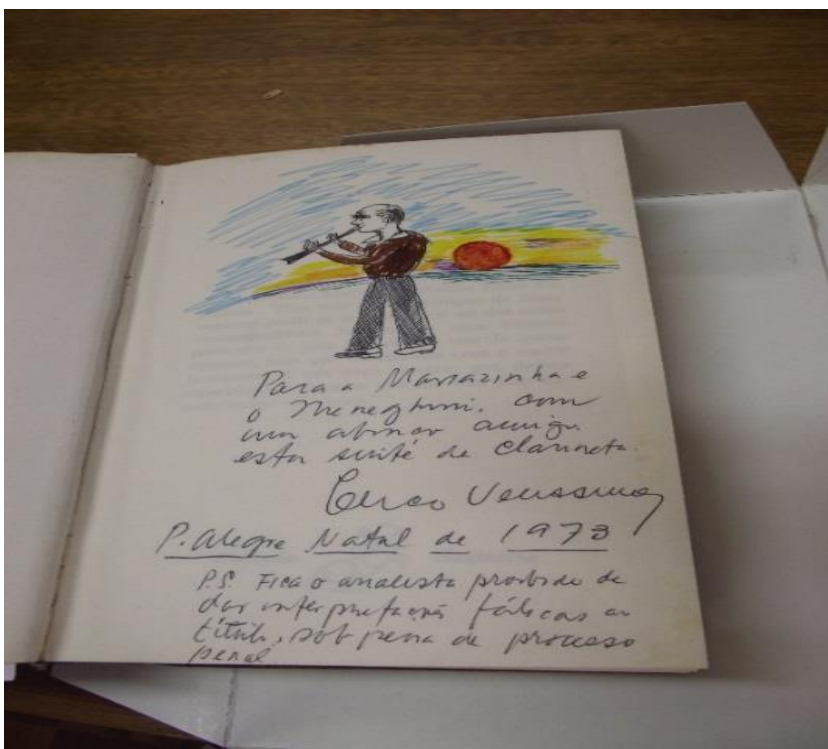 Para a Mariazinha e
o Meneghini, com
um abraço amigo
esta suíte de clarineta.
Erico Verissimo
P. Alegre Natal de 1973
P.S. Fica o analista proibido de
dar interpretações fálicas ao
título, sob pena de processo
penal